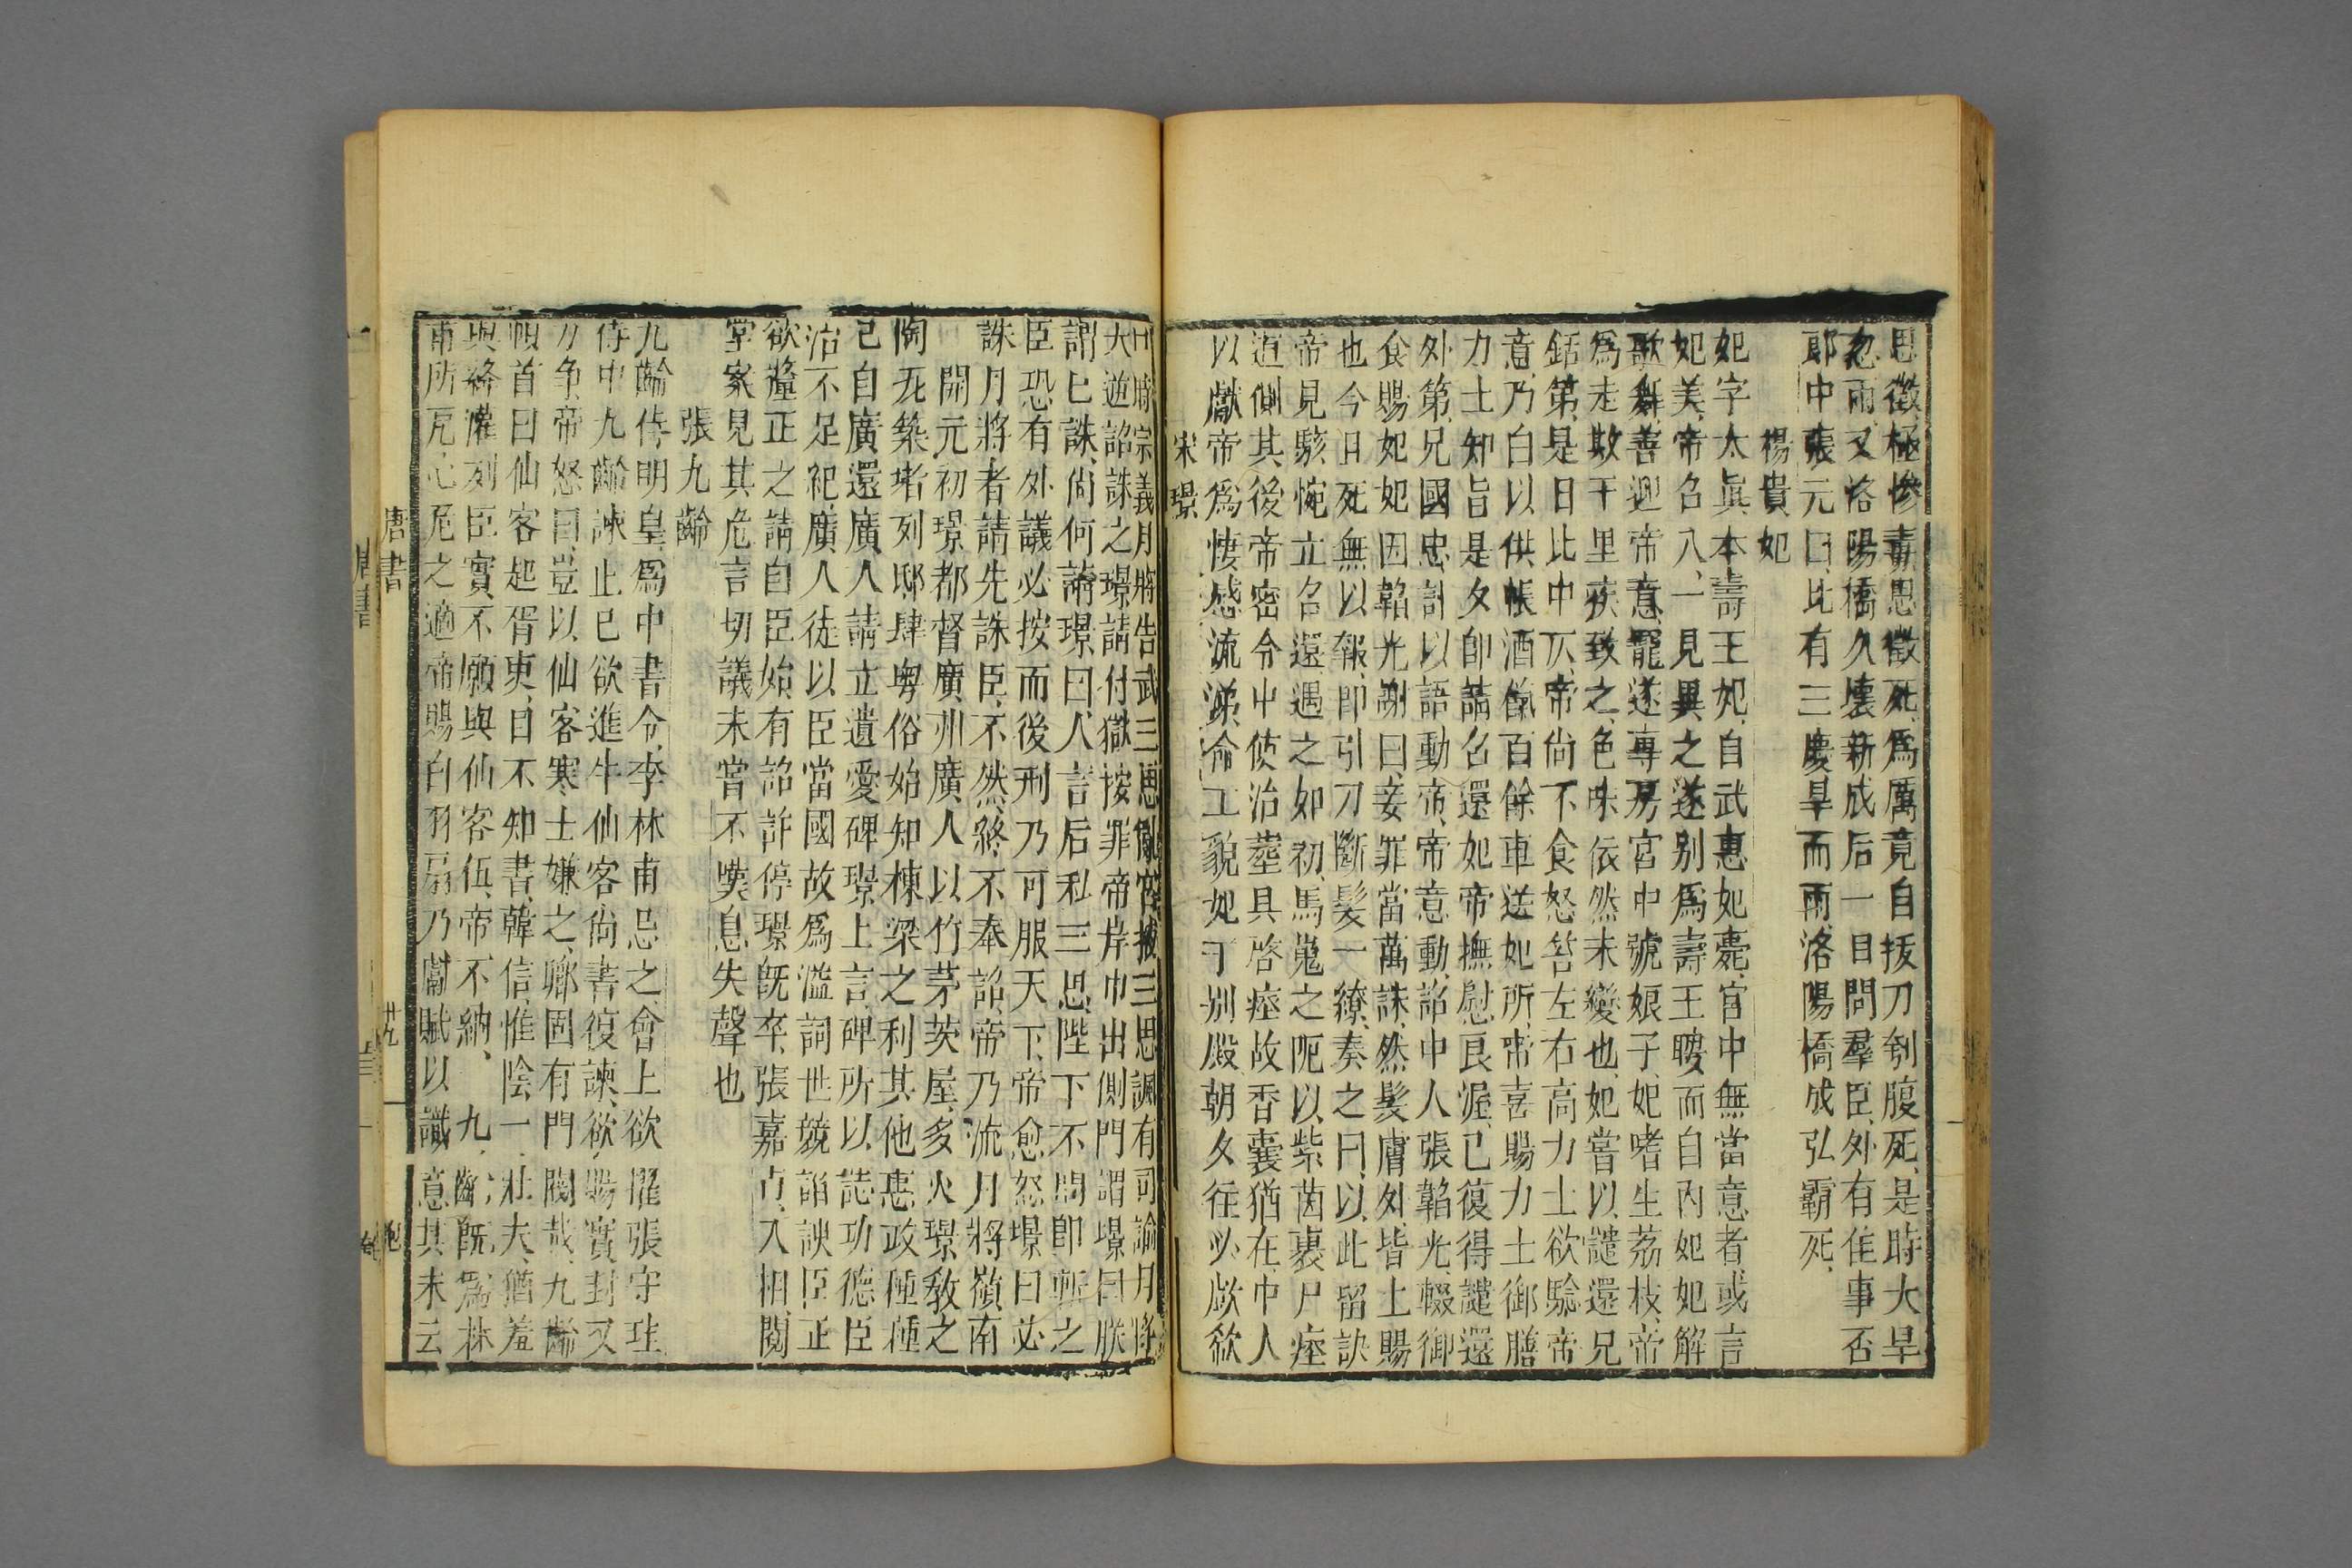 思徵極慘毒思徵死爲厲竟自拔刀刳腹死是時大旱
忽雨又洛陽橋久壞新成后一日問羣臣外有佳事否
郎中張元曰比有三慶旱而雨洛陽橋成弘霸死
楊貴妃
妃字太眞本壽王妃自武惠妃薨宮中無當意者或言
妃美帝召入一見異之遂别爲壽王聘而自內妃妃解
歌舞善迎帝意寵遂專房宮中號娘子妃嗜生荔枝帝
爲走數千里疾致之色味依然未變也妃嘗以譴還兄
銛第是日比中仄帝尙不食怒笞左右高力士欲騐帝
意乃白以供帳酒餼百餘車送妃所帝喜賜力士御膳
力士知旨是夕卽請召還妃帝撫慰良渥已復得譴還
外第兄國忠計以語動帝帝意動詔中人張韜光輟御
食賜妃妃因韜光謝曰妾罪當萬誅然髮膚外皆上賜
也今且死無以報卽引刀斷髮一繚奏之曰以此留訣
帝見駭惋立召還遇之如初馬嵬之阨以紫茵裹尸瘞
道側其後帝密令中使治葬具啓瘞故香囊猶在中人
以獻帝爲悽感流涕命工貌妃于别殿朝夕往必歔欷
宋璟
中宗義月將告武三思亂宮掖三思諷有司論月將
大逆詔誅之璟請付獄按罪帝岸巾出側門謂璟曰朕
謂已誅尙何請璟曰人言后私三思陛下不問卽斬之
臣恐有外議必按而後刑乃可服天下帝愈怒璟曰必
誅月將者請先誅臣不然終不奉詔帝乃流月將嶺南
開元初璟都督廣州廣人以竹茅茨屋多火璟敎之
陶瓦築堵列邸肆粤俗始知棟梁之利其他惠政種種
已自廣還廣人請立遺愛碑璟上言碑所以誌功德臣
治不足祀廣人徒以臣當國故爲溢詞世競諂諛臣正
欲釐正之請自臣始有詔許停璟旣卒張嘉貞入相閱
堂案見其危言切議未嘗不嘆息失聲也
張九齡
九齡侍明皇爲中書令李林甫忌之會上欲擢張守珪
侍中九齡諫止已欲進牛仙客尙書復諫欲賜實封又
力争帝怒曰豈以仙客寒士嫌之卿固有門閥哉九齡
頓首曰仙客起胥吏目不知書韓信惟陰一壯夫猶羞
與絳灌列臣實不願與仙客伍帝不納九齡旣爲林
甫所厄心危之適帝賜白羽扇乃獻賦以識意其末云
唐書
廿九